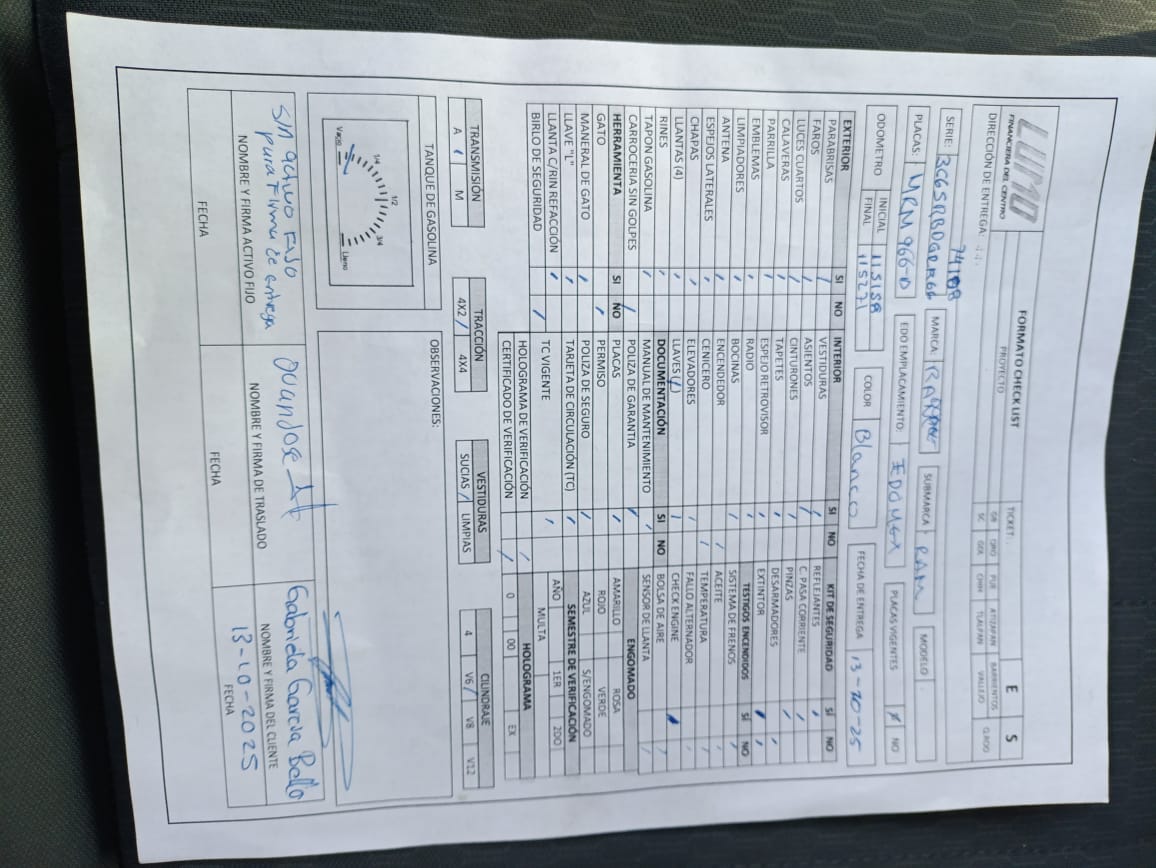 LUMO
FINANCIERA DEL CENTRO
FORMATO CHECK LIST
TICKET:
E S
DIRECCIÓN DE ENTREGA:
PROYECTO
GB QRO PUE ATIZAPAN BARRIENTOS Q.ROO
SC GDL CHIH TLALPAN VALLEJO
74108
SERIE: MARCA: SUBMARCA RAM MODELO
PLACAS: EDO EMPLACAMIENTO: EDOMEX PLACAS VIGENTES NO
ODOMETRO INICIAL 115158 COLOR Blanco FECHA DE ENTREGA 13-10-25
FINAL 115271
EXTERIOR SI NO INTERIOR SI NO KIT DE SEGURIDAD SÍ NO
PARABRISAS VESTIDURAS REFLEJANTES
FAROS ASIENTOS C. PASA CORRIENTE
LUCES CUARTOS CINTURONES PINZAS
CALAVERAS TAPETES DESARMADORES
PARRILLA ESPEJO RETROVISOR EXTINTOR
EMBLEMAS RADIO TESTIGOS ENCENDIDOS SÍ NO
LIMPIADORES BOCINAS SISTEMA DE FRENOS
ANTENA ENCENDEDOR ACEITE
ESPEJOS LATERALES CENICERO TEMPERATURA
CHAPAS ELEVADORES FALLO ALTERNADOR
LLANTAS (4) LLAVES CHECK ENGINE
RINES DOCUMENTACIÓN SI NO BOLSA DE AIRE
TAPON GASOLINA MANUAL DE MANTENIMIENTO SENSOR DE LLANTA
CARROCERIA SIN GOLPES POLIZA DE GARANTIA ENGOMADO
HERRAMIENTA SI NO PLACAS AMARILLO ROSA
GATO PERMISO ROJO VERDE
MANERAL DE GATO POLIZA DE SEGURO AZUL S/ENGOMADO
LLAVE "L" TARJETA DE CIRCULACIÓN (TC) SEMESTRE DE VERIFICACIÓN
LLANTA C/RIN REFACCIÓN TC VIGENTE AÑO 1ER 2DO
BIRLO DE SEGURIDAD HOLOGRAMA DE VERIFICACIÓN MULTA
CERTIFICADO DE VERIFICACIÓN HOLOGRAMA
0 00 EX
TRANSMISIÓN TRACCIÓN VESTIDURAS CILINDRAJE
A M 4X2 4X4 SUCIAS LIMPIAS 4 V6 V8 V12
TANQUE DE GASOLINA
Vacio 1/4 1/2 3/4 Lleno
OBSERVACIONES:
Sin activo Fijo
para Firma de entrega
Gabriela Garcia Bello
NOMBRE Y FIRMA ACTIVO FIJO NOMBRE Y FIRMA DE TRASLADO NOMBRE Y FIRMA DEL CLIENTE
13-10-2025
FECHA FECHA FECHA